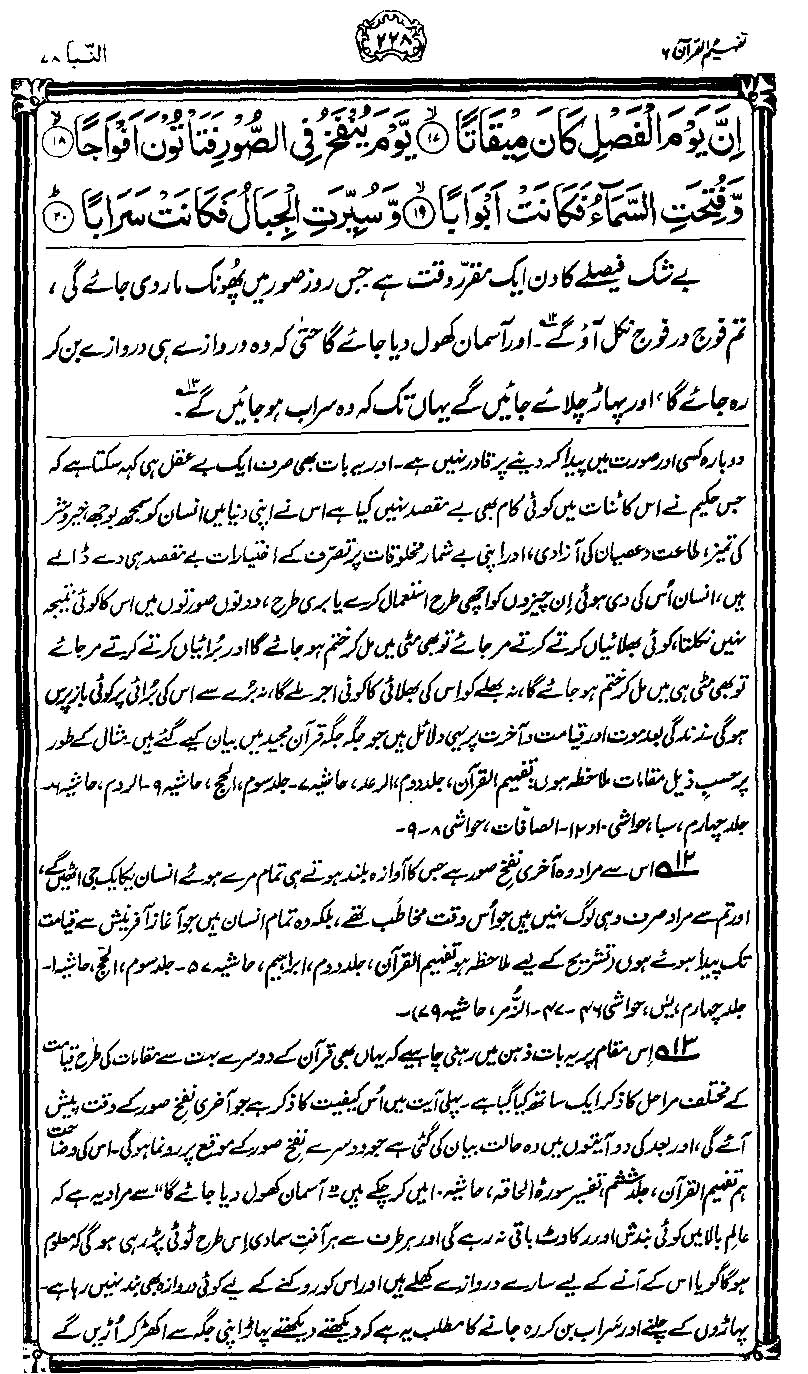 تفہیم القرآن ۶
۲۲۸
النّبا ۷۸
اِنَّ يَوْمَ الْفَصْلِ كَانَ مِيْقَاتًا ﴿۱۷﴾ يَّوْمَ يُنْفَخُ فِى الصُّوْرِ فَتَاْتُوْنَ اَفْوَاجًا ﴿۱۸﴾
وَّفُتِحَتِ السَّمَآءُ فَكَانَتْ اَبْوَابًا ﴿۱۹﴾ وَّسُيِّرَتِ الْجِبَالُ فَكَانَتْ سَرَابًا ﴿۲۰﴾
بے شک فیصلے کا دن ایک مقرّر وقت ہے جس روز صور میں پھُونک مار دی جائے گی،
تم فوج در فوج نکل آؤ گے۱۲۔ اور آسمان کھول دیا جائے گا حتّٰی کہ وہ دروازے ہی دروازے بن کر
رہ جائے گا، اور پہاڑ چلائے جائیں گے یہاں تک کہ وہ سراب ہو جائیں گے۱۳۔
دوبارہ کسی اور صورت میں پیدا کر دینے پر قادر نہیں ہے۔ اور یہ بات بھی صرف ایک بے عقل ہی کہہ سکتا ہے کہ
جس حکیم نے اس کائنات میں کوئی کام بھی بے مقصد نہیں کیا ہے اس نے اپنی دنیا میں انسان کو سمجھ بوجھ، خیر و شر
کی تمیز، طاعت و عصیان کی آزادی، اور اپنی بے شمار مخلوقات پر تصرّف کے اختیارات بے مقصد ہی دے ڈالے
ہیں، انسان اُس کی دی ہوئی اِن چیزوں کو اچھی طرح استعمال کرے یا بری طرح، دونوں صورتوں میں اس کا کوئی نتیجہ
نہیں نکلتا، کوئی بھلائیاں کرتے کرتے مر جائے تو بھی مٹی میں مل کر ختم ہو جائے گا اور بُرائیاں کرتے کرتے مر جائے
تو بھی مٹی ہی میں مل کر ختم ہو جائے گا، نہ بھلے کو اس کی بھلائی کا کوئی اجر ملے گا، نہ بُرے سے اس کی بُرائی پر کوئی باز پرس
ہو گی۔ زندگی بعد موت اور قیامت و آخرت پر یہی دلائل ہیں جو جگہ جگہ قرآن مجید میں بیان کیے گئے ہیں۔ مثال کے طور
پر حسبِ ذیل مقامات ملاحظہ ہوں: تفہیم القرآن، جلد دوم، الرعد، حاشیہ ۷۔ جلد سوم، الحج، حاشیہ ۹۔ الروم، حاشیہ ۶۔
جلد چہارم، سبا، حواشی ۱۰ و ۱۲۔ الصافّات، حواشی ۸-۹۔
۱۲ اس سے مراد وہ آخری نفخِ صور ہے جس کا آوازہ بلند ہوتے ہی تمام مرے ہوئے انسان یکایک جی اٹھیں گے،
اور تم سے مراد صرف وہی لوگ نہیں ہیں جو اُس وقت مخاطَب تھے، بلکہ وہ تمام انسان ہیں جو آغازِ آفرینش سے قیامت
تک پیدا ہوئے ہوں (تشریح کے لیے ملاحظہ ہو تفہیم القرآن، جلد دوم، ابراہیم، حاشیہ ۵۷۔ جلد سوم، الحج، حاشیہ ۱۔
جلد چہارم، یٰس، حواشی ۴۶-۴۷۔ الزُّمر، حاشیہ ۷۹)۔
۱۳ اِس مقام پر یہ بات ذہن میں رہنی چاہیے کہ یہاں بھی قرآن کے دوسرے بہت سے مقامات کی طرح قیامت
کے مختلف مراحل کا ذکر ایک ساتھ کیا گیا ہے۔ پہلی آیت میں اُس کیفیت کا ذکر ہے جو آخری نفخِ صور کے وقت پیش
آئے گی، اور بعد کی دو آیتوں میں وہ حالت بیان کی گئی ہے جو دوسرے نفخِ صور کے موقع پر رونما ہو گی۔ اس کی وضاحت
ہم تفہیم القرآن، جلد ششم، تفسیر سورۂ الحاقہ، حاشیہ ۱۰ میں کر چکے ہیں۔ "آسمان کھول دیا جائے گا" سے مراد یہ ہے کہ
عالم بالا میں کوئی بندش اور رکاوٹ باقی نہ رہے گی اور ہر طرف سے ہر آفتِ سماوی اِس طرح ٹوٹی پڑ رہی ہو گی کہ معلوم
ہو گا گویا اس کے آنے کے لیے سارے دروازے کھلے ہیں اور اس کو روکنے کے لیے کوئی دروازہ بھی بند نہیں رہا ہے۔
پہاڑوں کے چلنے اور سَراب بن کر رہ جانے کا مطلب یہ ہے کہ دیکھتے دیکھتے پہاڑ اپنی جگہ سے اکھڑ کر اُڑیں گے